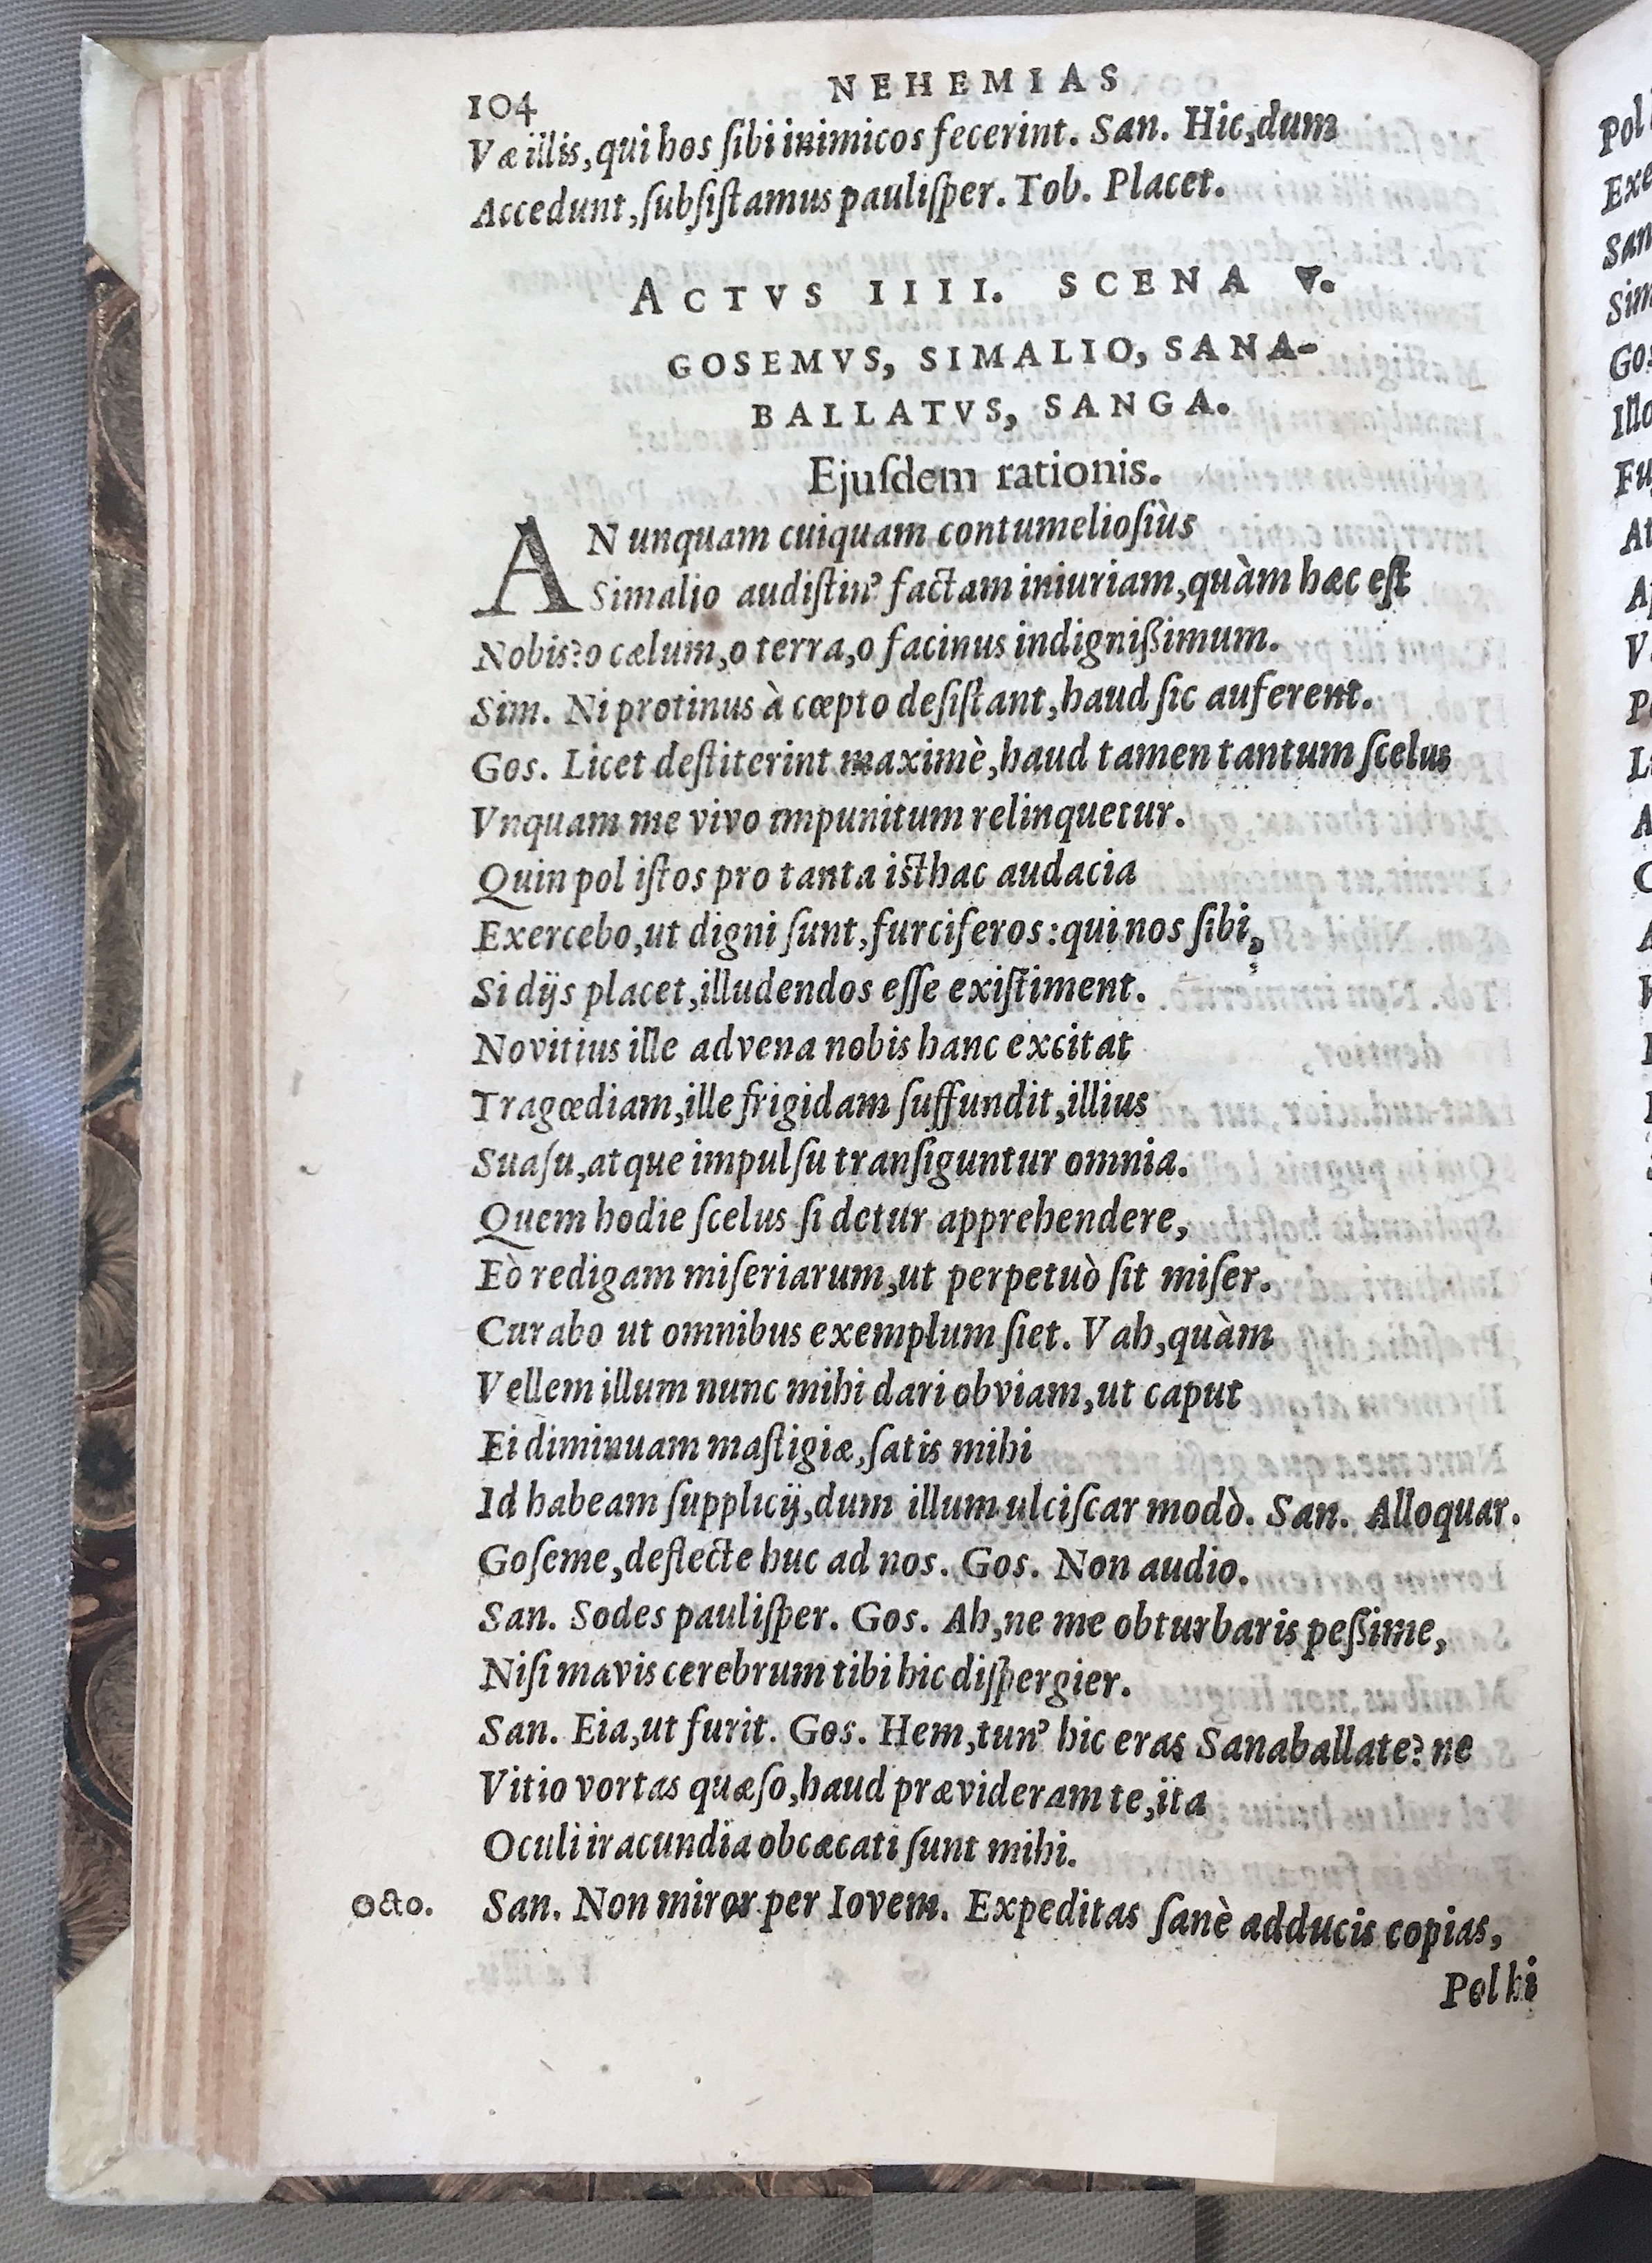 104 NEHEMIAS
Væ illis, qui hos ſibi inimicos fecerint. San. Hic, dum
Accedunt, ſubſiſtamus pauliſper. Tob. Placet.
ACTVS IIII. SCENA V.
GOSEMVS, SIMALIO, SANA-
BALLATVS, SANGA.
Ejuſdem rationis.
AN unquam cuiquam contumelioſiùs
Simalio audiſtin' factam iniuriam, quàm hæc eſt
Nobis? o cælum, o terra, o facinus indignißimum.
Sim. Ni protinus à cœpto deſiſtant, haud ſic auferent.
Gos. Licet deſtiterint maximè, haud tamen tantum ſcelus
Vnquam me vivo impunitum relinquetur.
Quin pol iſtos pro tanta iſthac audacia
Exercebo, ut digni ſunt, furciferos: qui nos ſibi,
Si dijs placet, illudendos eſſe exiſtiment.
Novitius ille advena nobis hanc excitat
Tragœdiam, ille frigidam ſuffundit, illius
Suaſu, atque impulſu tranſiguntur omnia.
Quem hodie ſcelus ſi detur apprehendere,
Eò redigam miſeriarum, ut perpetuò ſit miſer.
Curabo ut omnibus exemplum ſiet. Vah, quàm
Vellem illum nunc mihi dari obviam, ut caput
Ei diminuam maſtigiæ, ſatis mihi
Id habeam ſupplicij, dum illum ulciſcar modò. San. Alloquar.
Goſeme, deflecte huc ad nos. Gos. Non audio.
San. Sodes pauliſper. Gos. Ah, ne me obturbaris peßime,
Niſi mavis cerebrum tibi hic diſpergier.
San. Eia, ut furit. Gos. Hem, tun' hic eras Sanaballate? ne
Vitio vortas quæſo, haud prævideram te, ita
Oculi iracundia obcæcati ſunt mihi.
octo. San. Non miror per Iovem. Expeditas ſanè adducis copias,
Pol hi